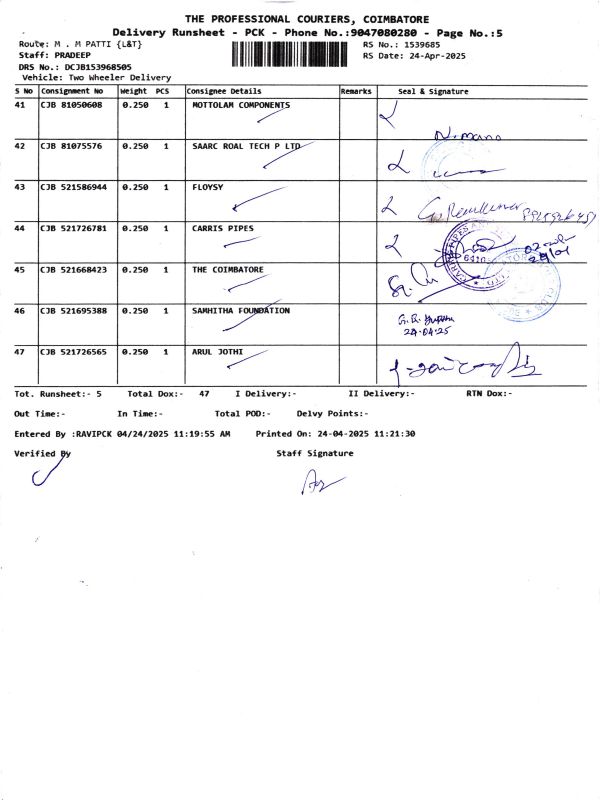 THE PROFESSIONAL COURIERS, COIMBATORE
Delivery Runsheet - PCK - Phone No.:9047080280 - Page No.:5
Route: M . M PATTI {L&T}
RS No.: 1539685
Staff: PRADEEP
RS Date: 24-Apr-2025
DRS No.: DCJB153968505
Vehicle: Two Wheeler Delivery
S No Consignment No Weight PCS Consignee Details Remarks Seal & Signature
41 CJB 81050608 0.250 1 MOTTOLAM COMPONENTS
N. mano
42 CJB 81075576 0.250 1 SAARC ROAL TECH P LTD
43 CJB 521586944 0.250 1 FLOYSY
44 CJB 521726781 0.250 1 CARRIS PIPES
45 CJB 521668423 0.250 1 THE COIMBATORE
46 CJB 521695388 0.250 1 SAMHITHA FOUNDATION
24.04.25
47 CJB 521726565 0.250 1 ARUL JOTHI
Tot. Runsheet:- 5 Total Dox:- 47 I Delivery:- II Delivery:- RTN Dox:-
Out Time:- In Time:- Total POD:- Delvy Points:-
Entered By :RAVIPCK 04/24/2025 11:19:55 AM Printed On: 24-04-2025 11:21:30
Verified By Staff Signature